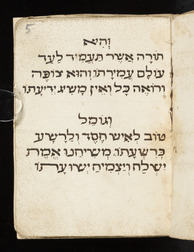 5
והיא
תורה אשר תעמיד לעד
עולם עמידתו והוא צופה
ורואה כל ואין משיג ידיעתו
וגומל
טוב לאיש חסד ולרשע
כרשעתו. משיחנו אמת
ישלח ויצמיח ישועתו